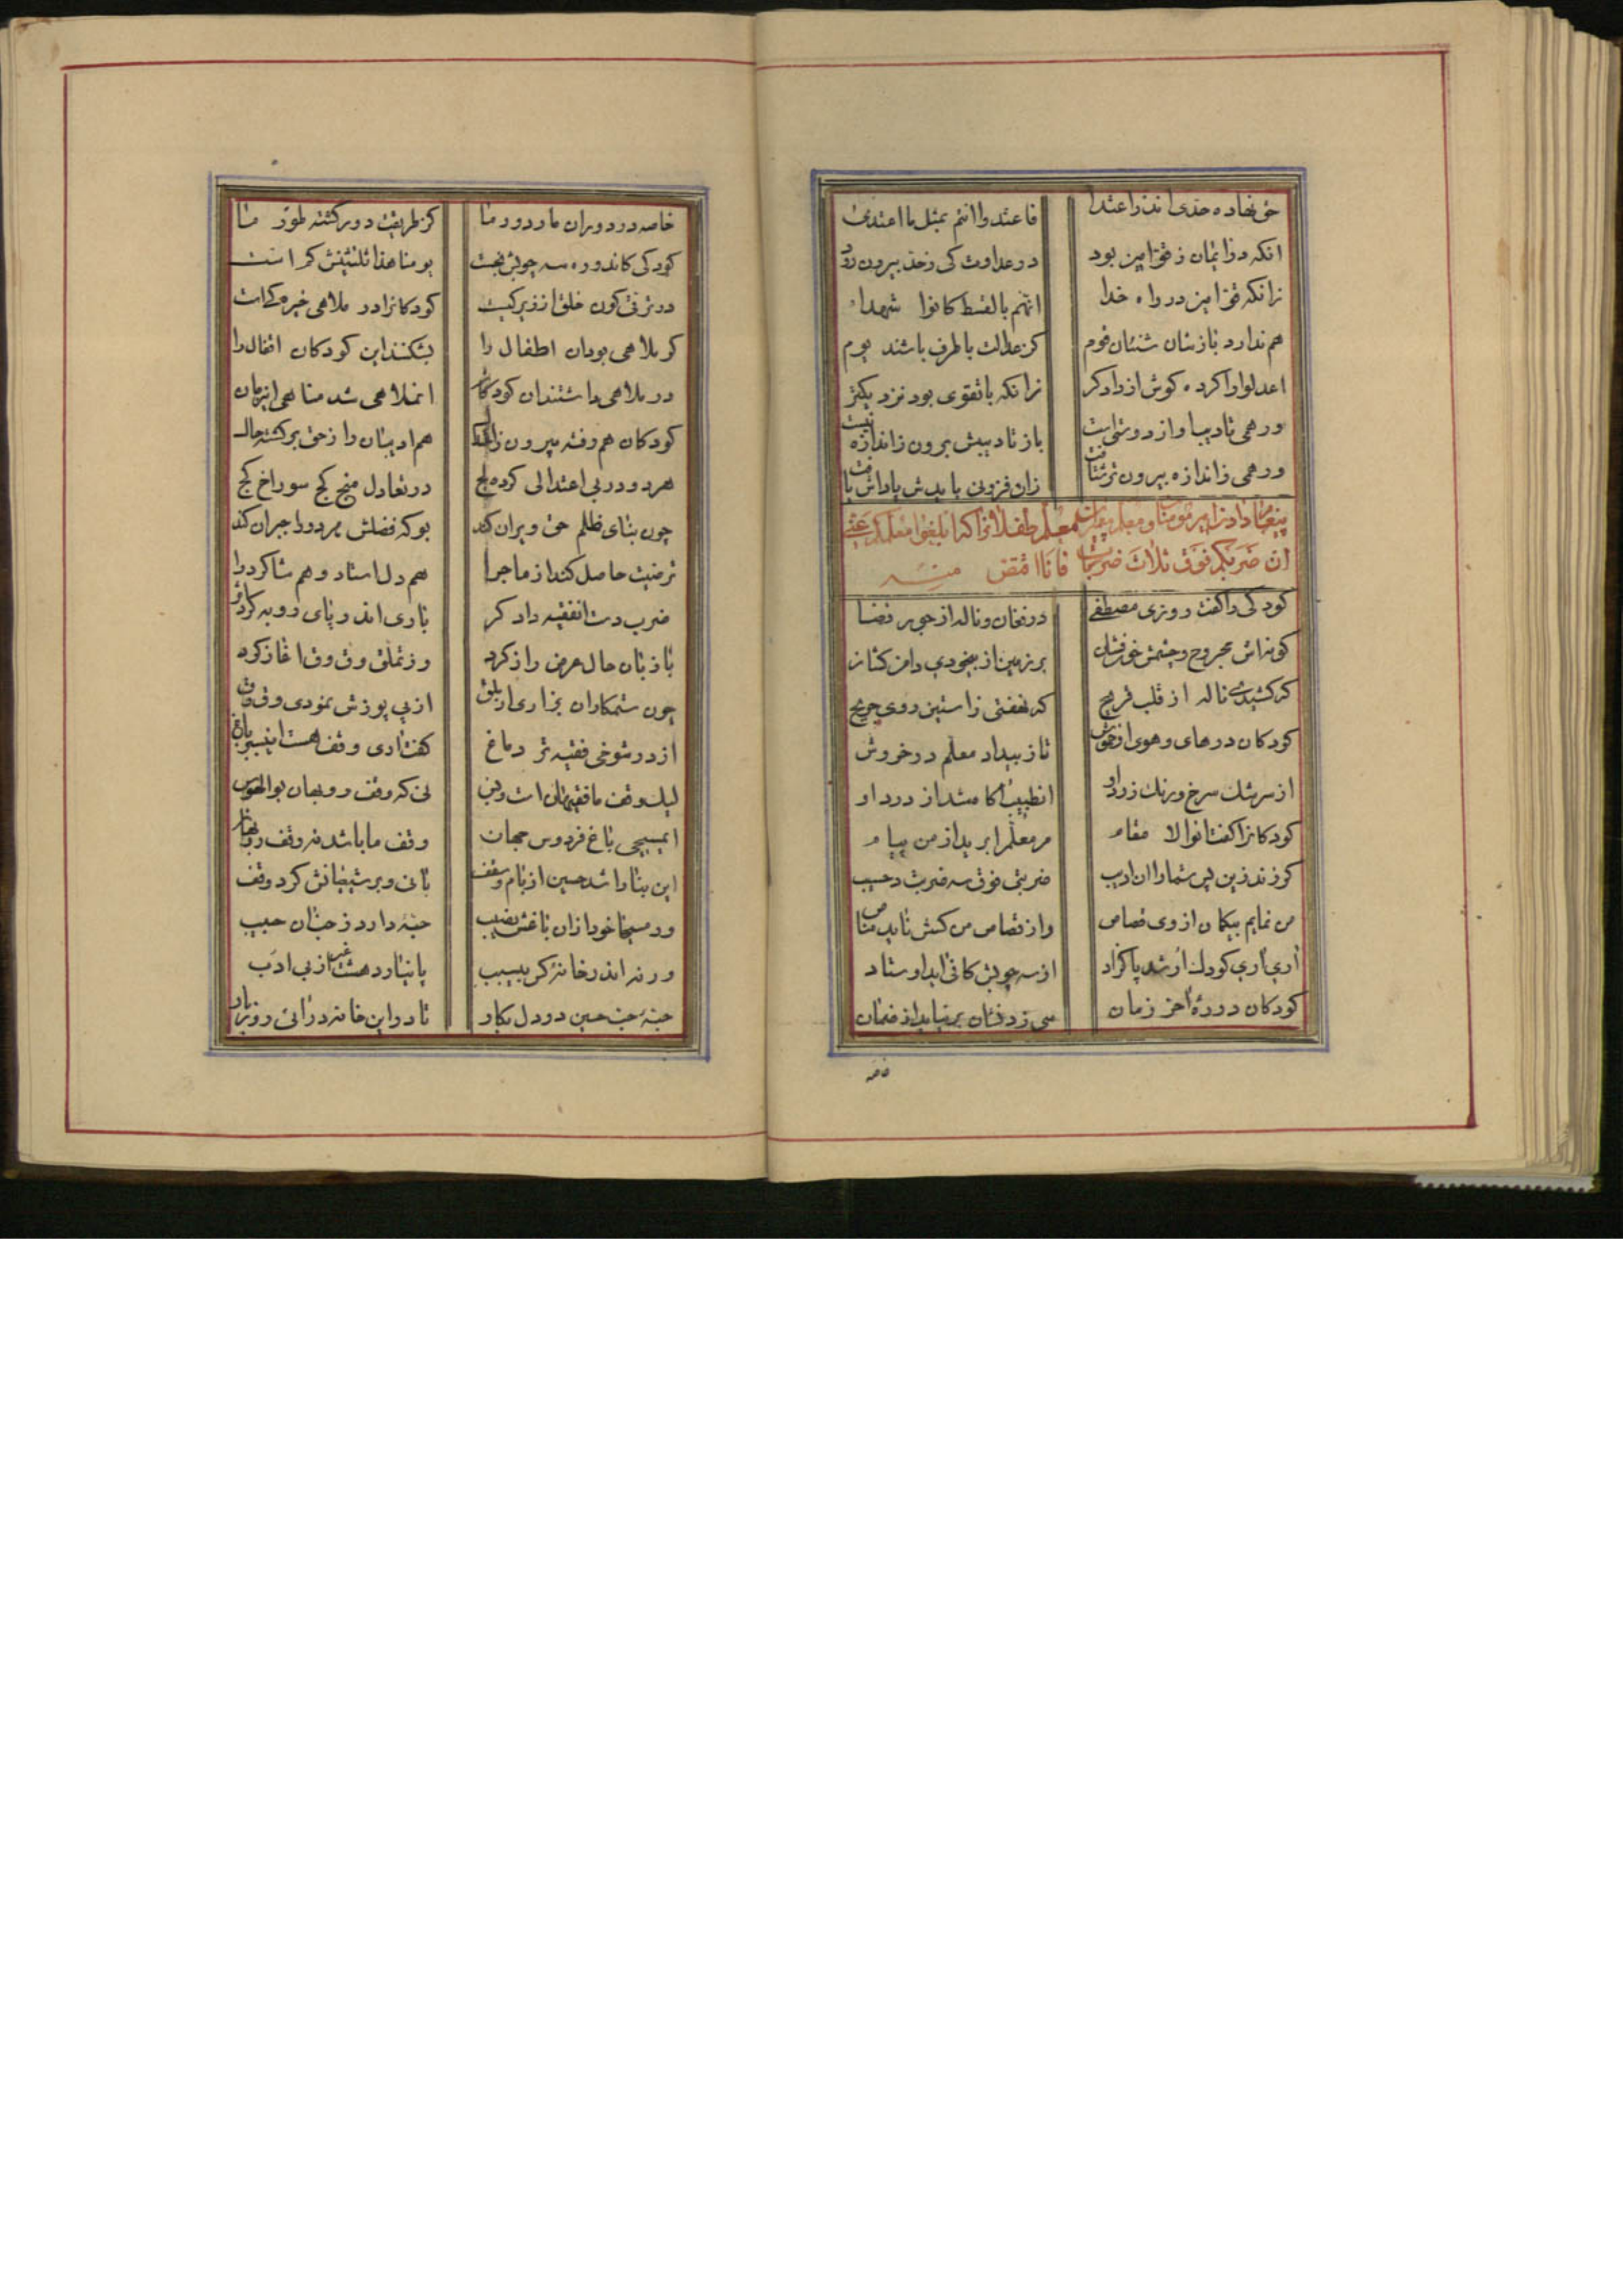 حق نهاده حدی اندر اعتدا فاعتدوا انتم بمثل ما اعتدی
انکه در ایمان ز قوامین بود در عداوت کی ز حد بیرون رود
زانکه قوامین در راه خدا انهم بالقسط کانوا شهدا
هم ندارد بازشان شنئان قوم کز عدالت باطرف باشند یوم
اعدلوا را کرده کوش از دادکر زانکه با تقوی بود نزدیکتر
ور همی تادیب او از دوستی است باز تادیبش برون ز اندازه نیست
ور همی ز اندازه بیرون تر شتافت زان فزونی بایدش پاداش یافت
معلم طفلا
ان ضربکم فوق ثلاث ضربات فانا اقتص منه
کودکی را کفت روزی مصطفی در فغان و ناله از جور قضا
کونه‌اش مجروح و چشمش خون فشان بر زمین از بیخودی دامن کشان
که کشیدی ناله از قلب قریح که نهفتی ز استین روی جریح
کودکان در های و هوی از تا ز بیداد معلم در خروش
از سرشک سرخ و رنک زرد او انطبیب اکاه شد از درد او
کودکانرا کفت انوالا مقام مر معلم را برید از من پیام
کر زند زین پس شما را ان ادیب ضربتی فوق سه ضربت در حسیب
من نمایم بیکمان از وی قصاص و از قصاص من کسش ناید مناص
اری اری کودک ار شد پاکزاد از سه چوبش کافی اید اوستاد
کودکان دوره اخر زمان سی زدنشان بر نیاید از ضمان
خاصه
خاصه در دوران ما در دور ما کز طریقت دور کشته طور ما
کودکی کاندوره سه چوبش بجست یومنا هذا ثلثینش کم است
در ترقی کون خلق از زیرکیست کودکانرا در ملاهی خیره‌کیست
کر ملاهی بودان اطفال را بشکنند این کودکان اتقال را
در ملاهی داشتندان کودکان انملاهی شد مناهی اینزمان
کودکان هم رفته بیرون ز هم ادیبان را ز حق برکشته حال
هر دو در بی اعتدالی کرده لج در تعادل میخ کج سوراخ کج
چون بنای ظلم حق ویران کند بو که فضلش هر دو را جبران کند
ترضیت حاصل کند از ماجرا هم دل استاد و هم شاکرد را
ضرب دست انفقیه دادکر باری اندر پای روبه
با زبان حال عرض راز کرد وز تملق وق وق اغاز کرد
چون ستمکاران بزاری از پی پوزش نمودی وق وق
از در شوخی فقیه تر دماغ کفت اری وقف هست اینسبز باغ
لیک وقف ما فقیهان است و بس نی که وقف روبهان بوالهوس
ایمسیحی باغ فردوس جهان وقف ما باشد نه وقف روبهان
این بنا را شد حسین از بام و سقف بانی و بر شیعیانش کرد وقف
ور مسیحا خود از ان باغش نصیب حبه دارد ز حب ان حبیب
ورنه اندر خانه کس بی‌سبب پا نیارد هشت غیر از بی ادب
حبه حب حسین در دل بکار تا در این خانه درائی روز بار